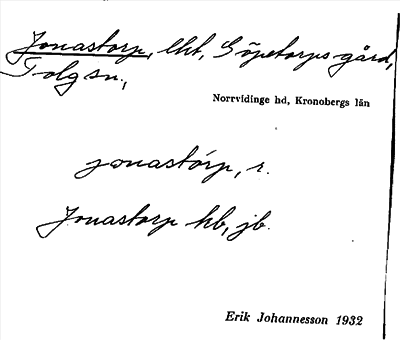 Jonastorp, lht, Söpetorps gård,
Tolg sn.,
Norrvidinge hd, Kronobergs län
jonastórp, r.
Jonastorp hb, jb.
Erik Johannesson 1932